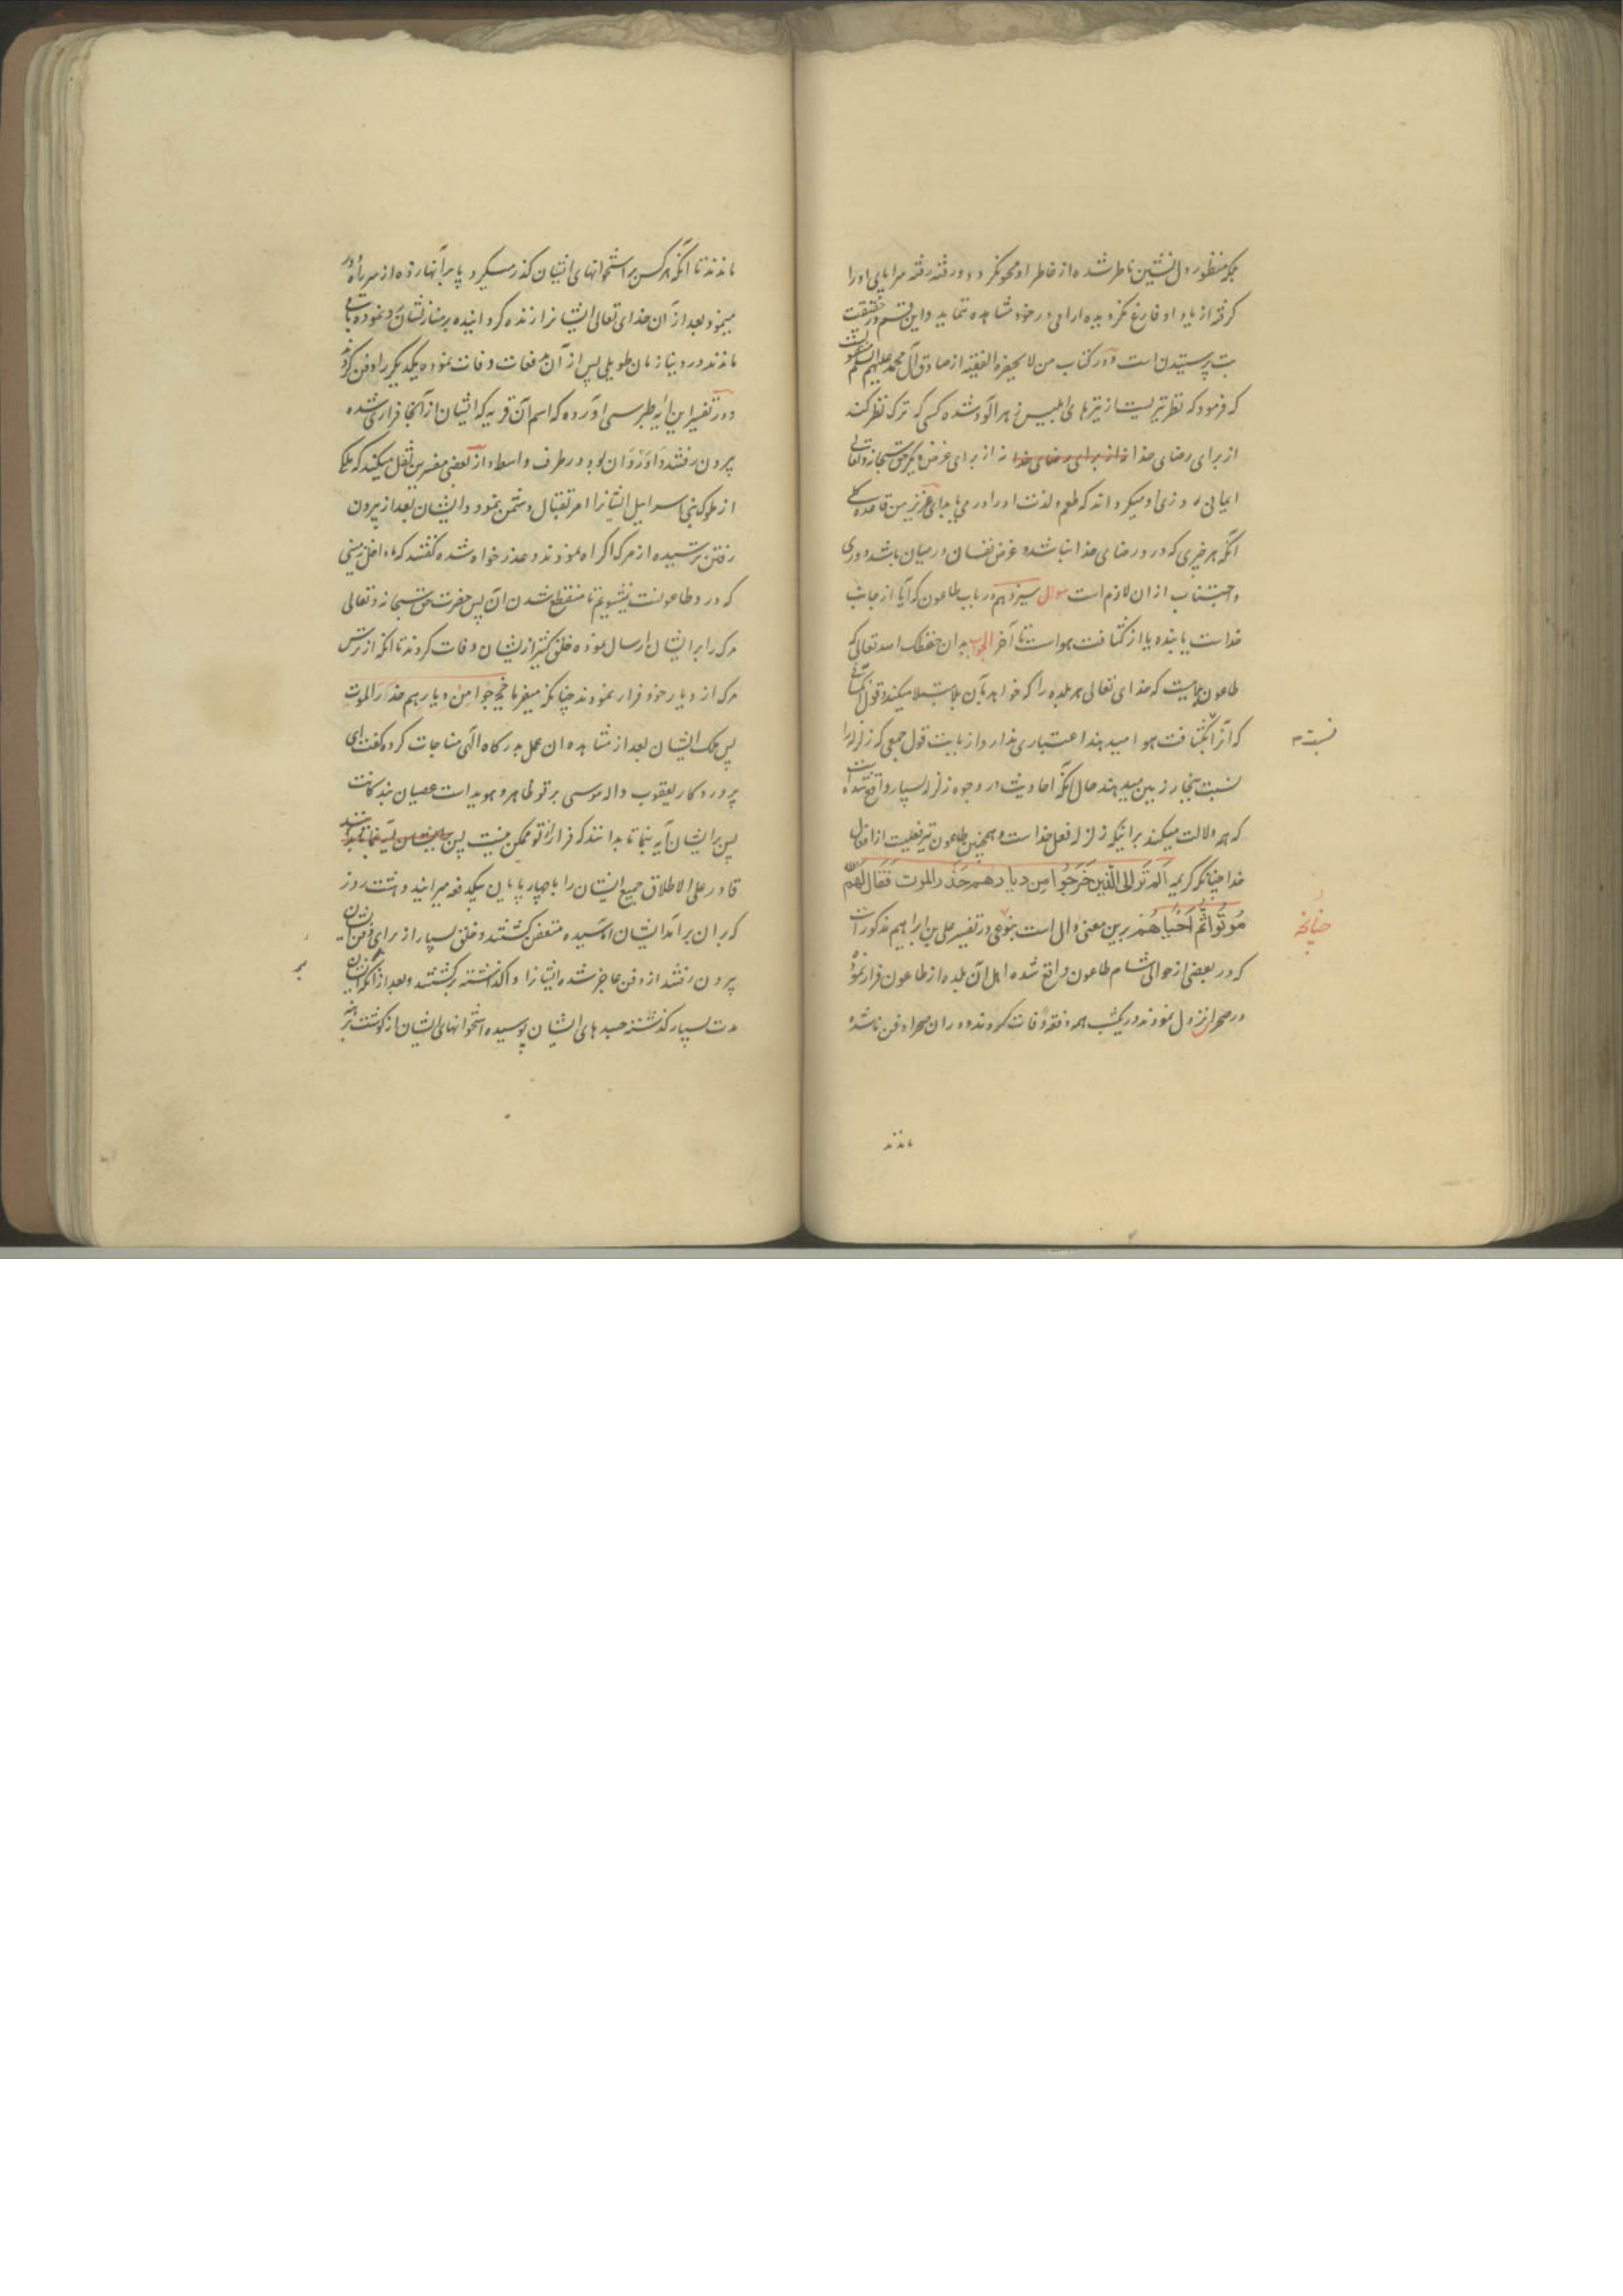 که منظور دل نشین ناظر شده از خاطر او محو نگردد و رفته رفته سراپای او را
گرفته از یاد او فارغ نگردیده ارامی در خود مشاهده ننماید و این قسم در حقیقت
بت پرستیدن است و در کتاب من لا یحضره الفقیه از صادق آل محمد علیهم السلام
که فرمود که نظر تیریست از تیرهای ابلیس زهر آلود شده کسی که ترک نظر کند
از برای رضای خدا نه از برای غرض دیگر حق سبحانه و تعالی
ایمانی روزی او میگرداند که طعم و لذت او را در می یابد ای عزیز من قاعده کلی
آنکه هر چیزی که در و رضای خدا نباشد و غرض نفسانی در میان باشد دوری
و اجتناب از ان لازم است سوال سیزدهم در باب طاعون که آیا از جانب
خداست یا بنده یا از کثافت هواست تا آخر الجواب بدان حفظک الله تعالی که
طاعون بلاییست که خدای تعالی هر بلده را که خواهد بآن بلا مبتلا میکند و قول
که آنرا بکثافت هوا میدهند اعتباری ندارد و از بابت قول جمعی که زلزله را
نسبت ببخار زمین میدهند حال آنکه احادیث در وجوه زلزله بسیار واقع شده است
که همه دلالت میکند بر اینکه زلزله فعل خداست و همچنین طاعون نیز فعلیست از افعال
خدا چنانکه کریمه الم تر الی الذین خرجوا من دیارهم حذر الموت فقال لهم الله
موتوا ثم احیاهم برین معنی دال است بنوعی در تفسیر علی بن ابراهیم مذکور است
که در بعضی از حوالی شام طاعون واقع شده اهل آن بلده از طاعون فرار نموده
در صحرا نزول نمودند در یکشب همه دفعة وفات کردند و در ان صحرا دفن ناشده
نسبت
چنانچه
ماندند
ماندند تا آنکه هر کس بر استخوانهای ایشان گذر میکرد پا بر آنها زده از سر راه دور
مینمود بعد از آن خدای تعالی ایشانرا زنده گردانیده بر منازلشان رد نموده باقی
ماندند در دنیا زمان طویلی پس از آن بدفعات وفات نموده یکدیگر را دفن کردند
و در تفسیر این آیه طبرسی آورده که اسم آن قریه که ایشان از آنجا فراری شده
بیرون رفتند داوردان بود در طرف واسط و از بعضی مفسرین نقل میکند که ملکی
از ملوک بنی اسراییل ایشانرا امر بقتال دشمن نمود و ایشان بعد از بیرون
رفتن ترسیده از مرک اکراه نمودند و عذر خواه شده گفتند که ما داخل زمینی
که در و طاعونست نمیشویم تا منقطع شدن آن پس حضرت حق سبحانه و تعالی
مرک را بر ایشان ارسال نموده خلق کثیر از ایشان وفات کردند تا آنکه از ترس
مرک از دیار خود فرار نمودند چنانکه میفرماید خرجوا من دیارهم حذر الموت
پس ملک ایشان بعد از مشاهده ان عمل بدرکاه الهی مناجات کرده گفت ای
پروردکار یعقوب و اله موسی بر تو ظاهر و هویداست عصیان بندکانت
پس بر ایشان آیه بنما تا بدانند که فرار از تو ممکن نیست پس
قادر علی الاطلاق جمیع ایشان را با چارپایان بیکدفعه میرانید و هشت روز
که بر ان برآمد ایشان اماسیده متعفن گشتند و خلق بسیار از برای دفن ایشان
بیرون رفتند از دفن عاجز شده ایشانرا واگذاشته برگشتند و بعد از آنکه
مدت بسیار گذشته جسدهای ایشان پوسیده استخوانهای ایشان از گوشت